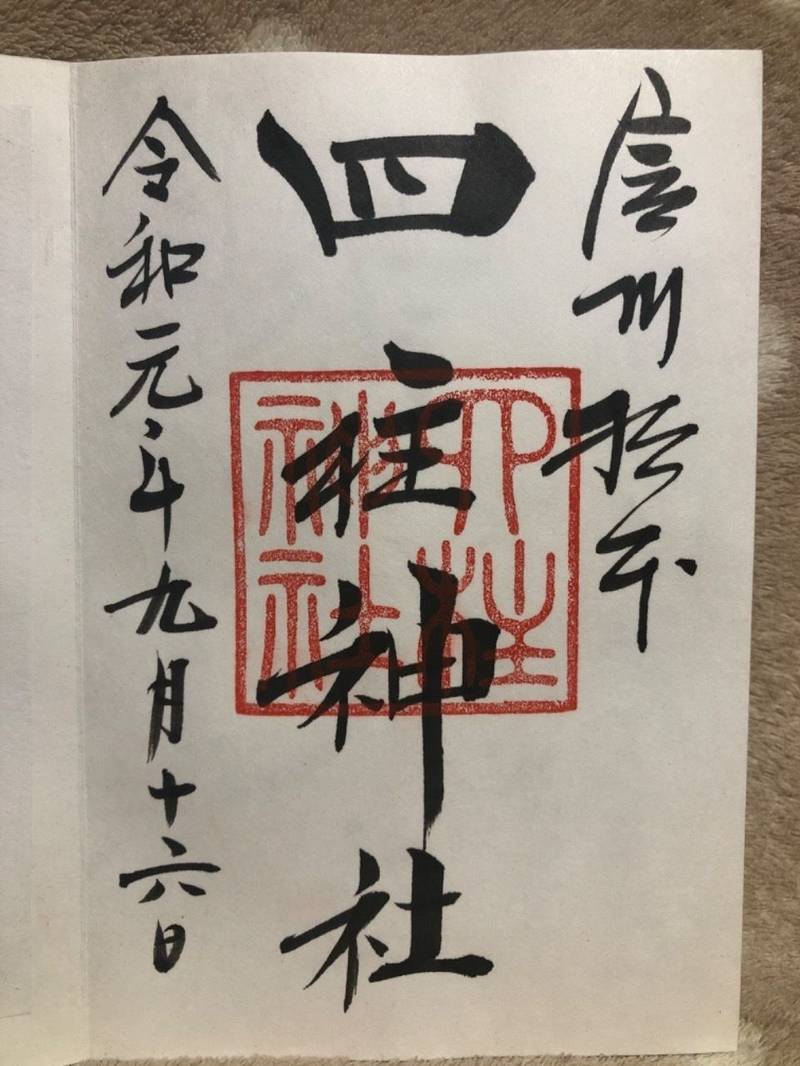 信州松本
四柱神社
四柱神社
令和元年九月十六日